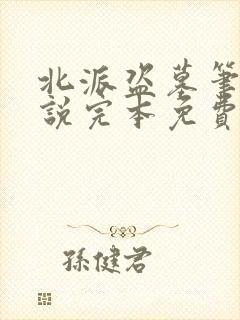 北派盗墓筆
說完本免費
孫健君